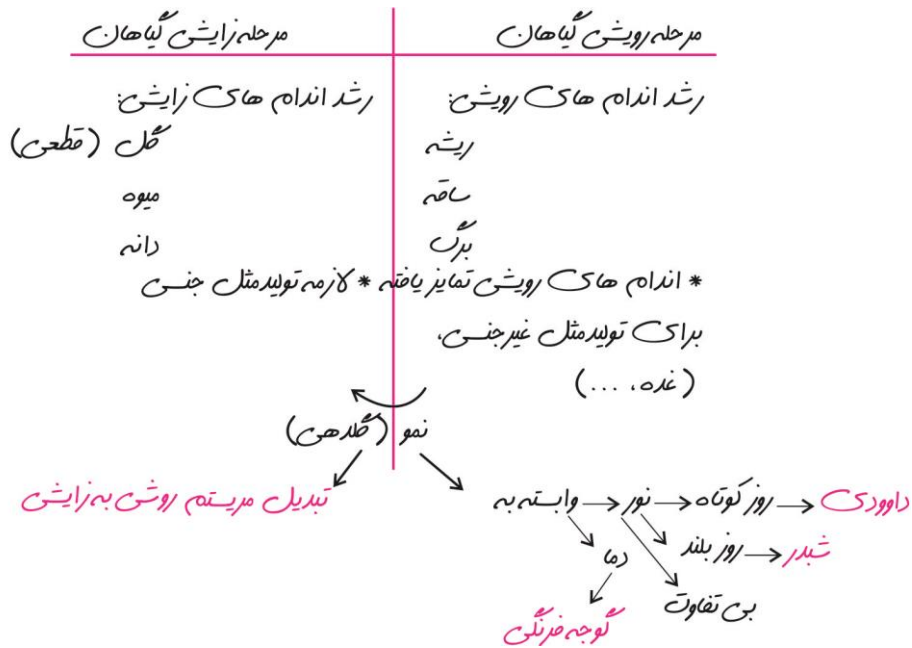 مرحله رویشی گیاهان
مرحله زایشی گیاهان
رشد اندام های رویشی:
ریشه
ساقه
برگ
* اندام های رویشی تمایز یافته
برای تولیدمثل غیرجنسی.
(غده، ...)
رشد اندام های زایشی:
گل (قطعی)
میوه
دانه
* لازمه تولیدمثل جنسی
نمو (گلدهی)
تبدیل مریستم روشی به زایشی
وابسته به → نور → روز کوتاه → داوودی
روز بلند → شبدر
دما
بی تفاوت
گوجه فرنگی